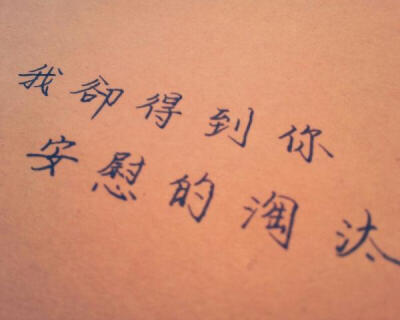 我卻得到你
安慰的淘汰